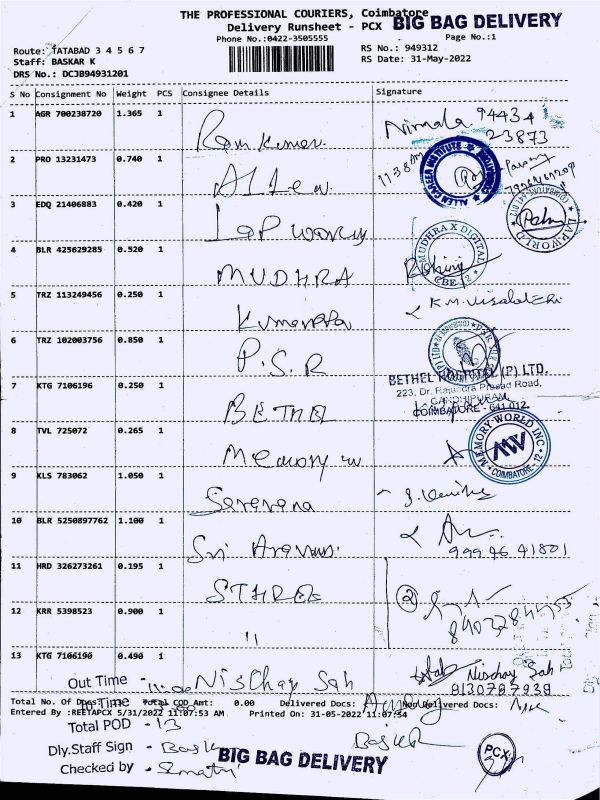 THE PROFESSIONAL COURIERS, Coimbatore
BIG BAG DELIVERY
Delivery Runsheet - PCX
Phone No.:0422-3505555
Page No.:1
Route: TATABAD 3 4 5 6 7
RS No.: 949312
Staff: BASKAR K
RS Date: 31-May-2022
DRS No.: DCJB94931201
S No Consignment No Weight PCS Consignee Details Signature
1 AGR 700238720 1.365 1 Ram Kumar. Nirmala 94434
23873
2 PRO 13231473 0.740 1 Allen
ALLEN CAREER INSTITUTE
3 EDQ 21406883 0.420 1 Lap World
LAPWORLD
4 BLR 425629285 0.520 1 MUDHRA
MUDHRA X DIGITAL
CBE-12
5 TRZ 113249456 0.250 1 K.M. Visalatchi
6 TRZ 102003756 0.850 1 P.S.R
BETHEL HOSPITAL (P) LTD.
223, Dr. Rajendra Prasad Road,
GANDHIPURAM
COIMBATORE - 641 012.
7 KTG 7106196 0.250 1 BETHEL
8 TVL 725072 0.265 1 Memory w
MEMORY WORLD INC
MW
COIMBATORE - 12
9 KLS 783062 1.050 1 Saravana
10 BLR 5250897762 1.100 1 Sri
99976 41801
11 HRD 326273261 0.195 1 STHREE
2
12 KRR 5398523 0.900 1 "
13 KTG 7106190 0.490 1 Nischay Sah Nischay Sah
8130797939
Out Time -
Total No. Of Docs: 13 Total COD Amt: 0.00 Delivered Docs: Non Delivered Docs:
In Time -
Entered By :REETAPCX 5/31/2022 11:07:53 AM Printed On: 31-05-2022 11:07:54
Total POD - 13
Dly.Staff Sign - Baskar
Baskar
Checked by -
BIG BAG DELIVERY
PCX